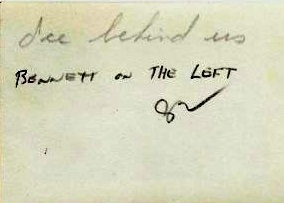 Ice behind us
BENNETT ON THE LEFT